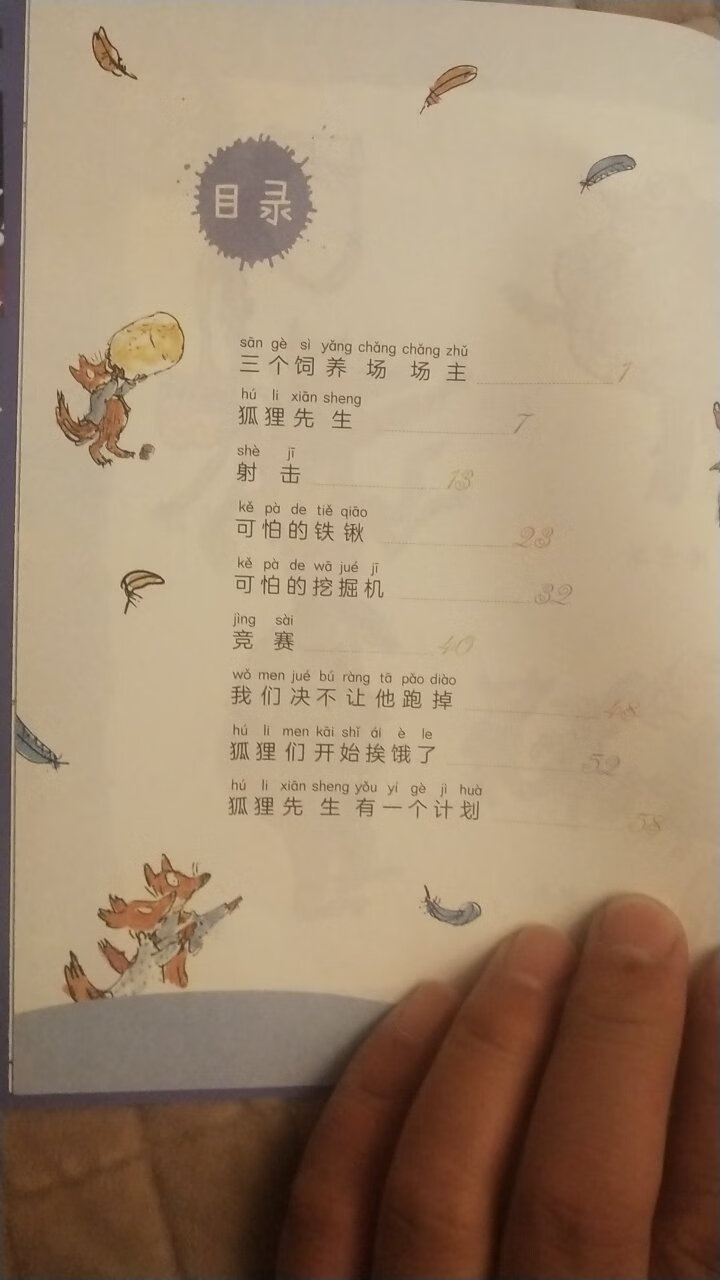 目录
sān gè sì yǎng chǎng chǎng zhǔ
三个饲养场场主 1
hú li xiān sheng
狐狸先生 7
shè jī
射击 13
kě pà de tiě qiāo
可怕的铁锹 23
kě pà de wā jué jī
可怕的挖掘机 32
jìng sài
竞赛 40
wǒ men jué bú ràng tā pǎo diào
我们决不让他跑掉 48
hú li men kāi shǐ ái è le
狐狸们开始挨饿了 52
hú li xiān sheng yǒu yí gè jì huà
狐狸先生有一个计划 58